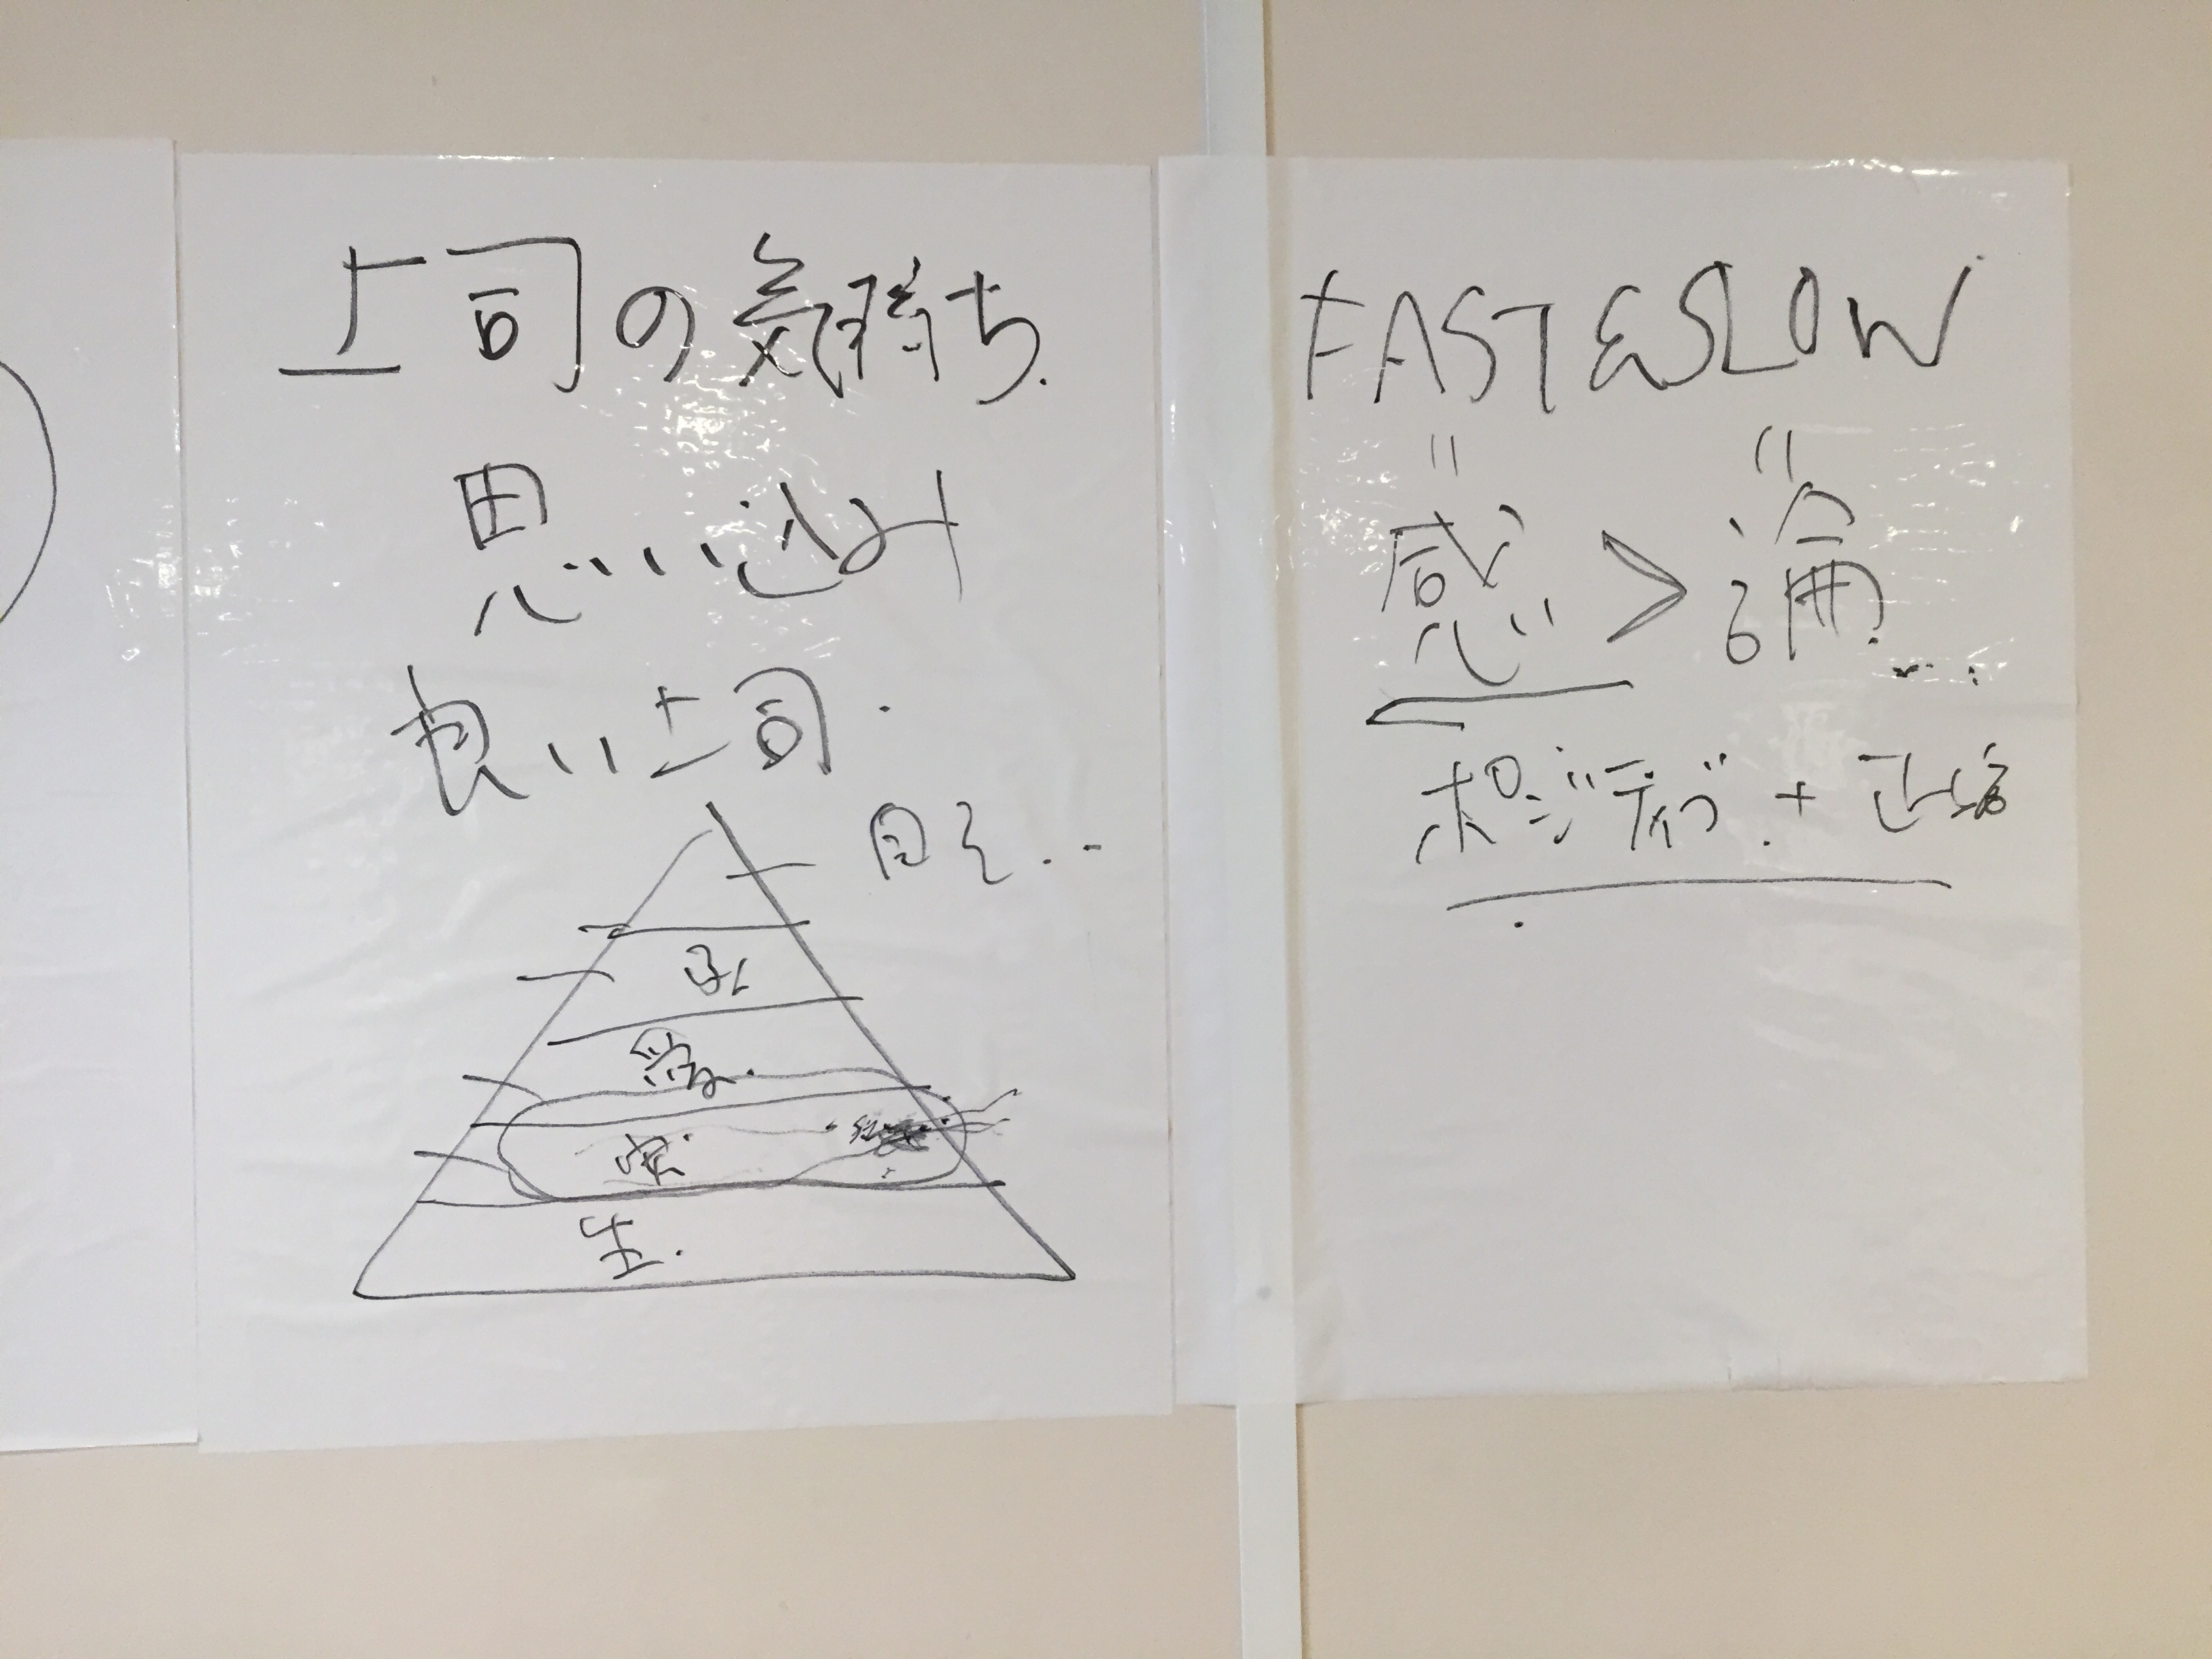 上司の気持ち.
思い込み
良い上司.
自己..
愛.
安.
生.
FAST & SLOW
= =
感 > 論...
ポジティブ. +